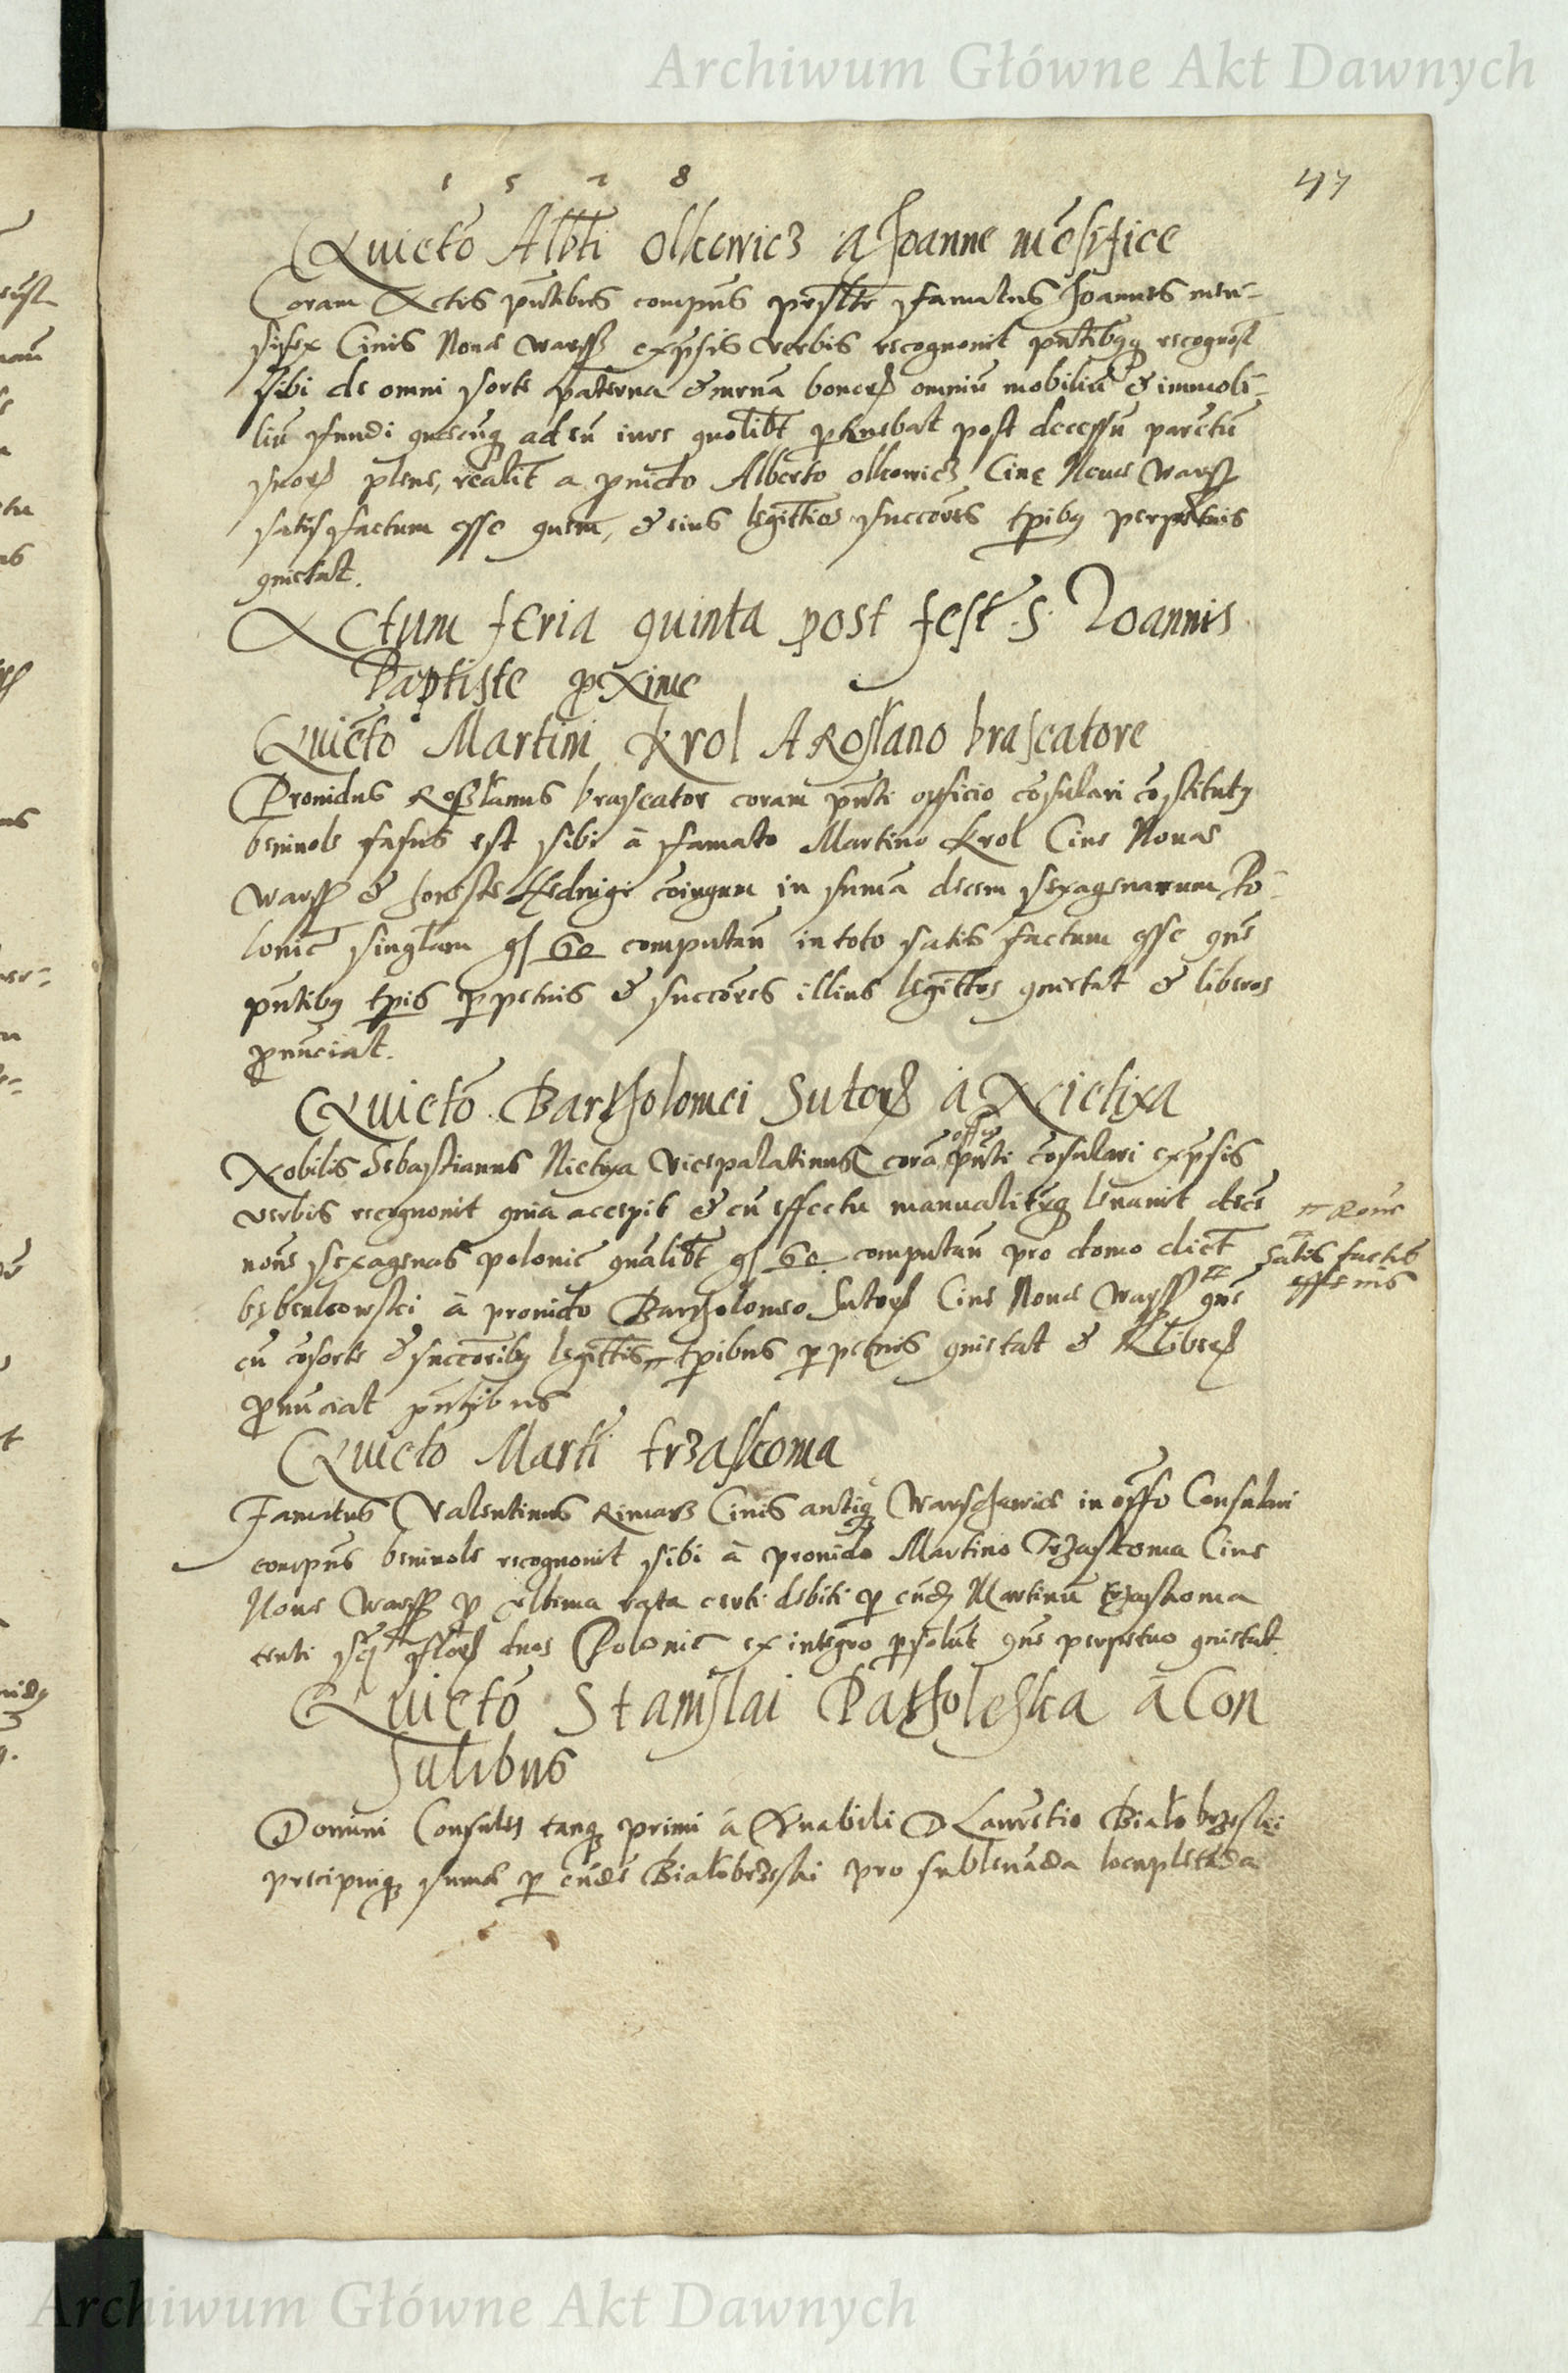 Archiwum Główne Akt Dawnych
1 5 7 8
47
Quietō Albti Olkowicz a Joanne mēsifice
Coram Actis pn̄tibus compn̄s psltr famatus Joannes men-
sifex Civis Novae Warss exp̄sis verbis recognovit pn̄tibusq recognost
sibi de omni sorte paterna & mr̄na bonorū omniū mobiliū & immobi-
liū fundi quecūq ad eū iure quolibt p̄tinebat post decessū parētū
suorū plene, realit a pvido Alberto Olkowicz Cive Novae Warss
satisfactum esse quem, & eius legittīos succōres tp̄ibȝ perpetuis
quietat.
Actum feria quinta post fest S. Joannis
Baptiste pxime
Quietō Martini Krol A Roslano braseatore
Providus Roslanus braseator coram pn̄ti officio cōsulari cōstitutȝ
benivole fassus est sibi ā famato Martino Krol Cive Novae
Warss & honeste Hedvigi cōiugum in sumā decem sexagenarum Po-
lonic singlam gs 60 computan̄ in toto satis factum esse qūe
pn̄tibȝ tp̄is p̄petuis & succōres illius legittōs quietat & liberos
pnūciat.
Quietō Bartholomei Sutorȝ a Nietixa
Nobilis Sebastianus Nietyxa Vicepalatinus corā offō pn̄ti cōsulari exp̄sis
verbis recognovit quia accepit & cū effectu manualitȝq levavit decē
novē sexagenas polonic qualibt gs 60 computan̄ pro domo dict
bebenkowski ā provido Bartholomeo Sutorȝ Cive Novae Warss qūe
cū cōsorte & succōribȝ legittīs tp̄ibus p̄petuis quietat & liberȝ
pnūciat pn̄tibus
satis factis
Quietō Marti Trzaskoma
Famatus Valentinus Rimarz Civis antiq Warschaviae in offo Consulari
compn̄s benivole recognovit sibi ā provido Martino Trzaskoma Cive
Nove Warss p ultima rata certi debiti p eūdē Martinū Trzaskoma
tenti sȝ florȝ duos Polonic ex integro psolut qūe perpetuo quietat
Quietō Stanislai Patholeska ā Con
sulibus
Domini Consules tanq primi ā Vn̄abili D Laurētio Białobrzeski
precipuiq sumae p eūdē Białobrzeski pro sublevāda locupletāda
Archiwum Główne Akt Dawnych